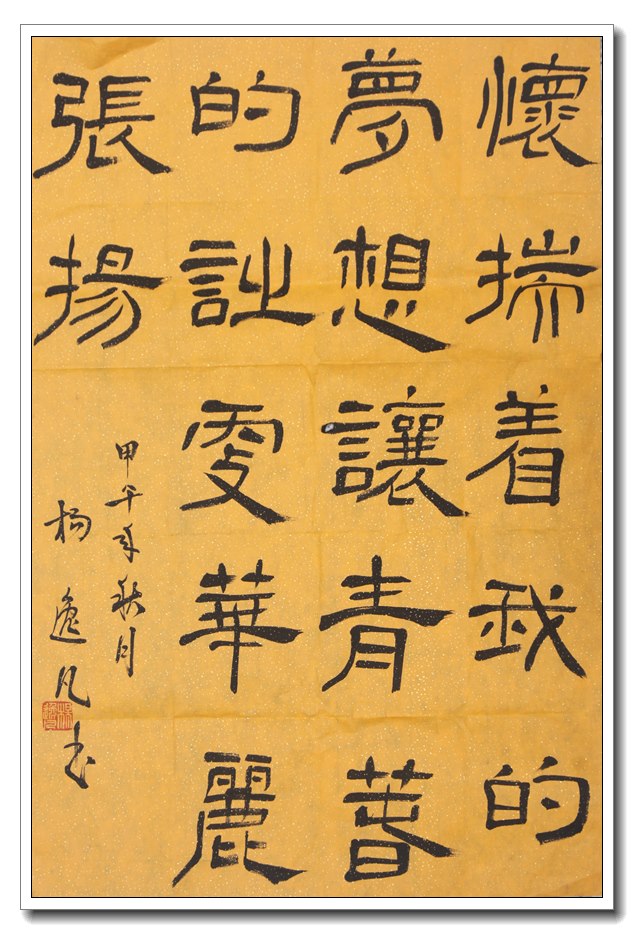 懷揣着我的
夢想讓青春
的詩更華麗
張揚
甲午年秋月
楊逸凡书